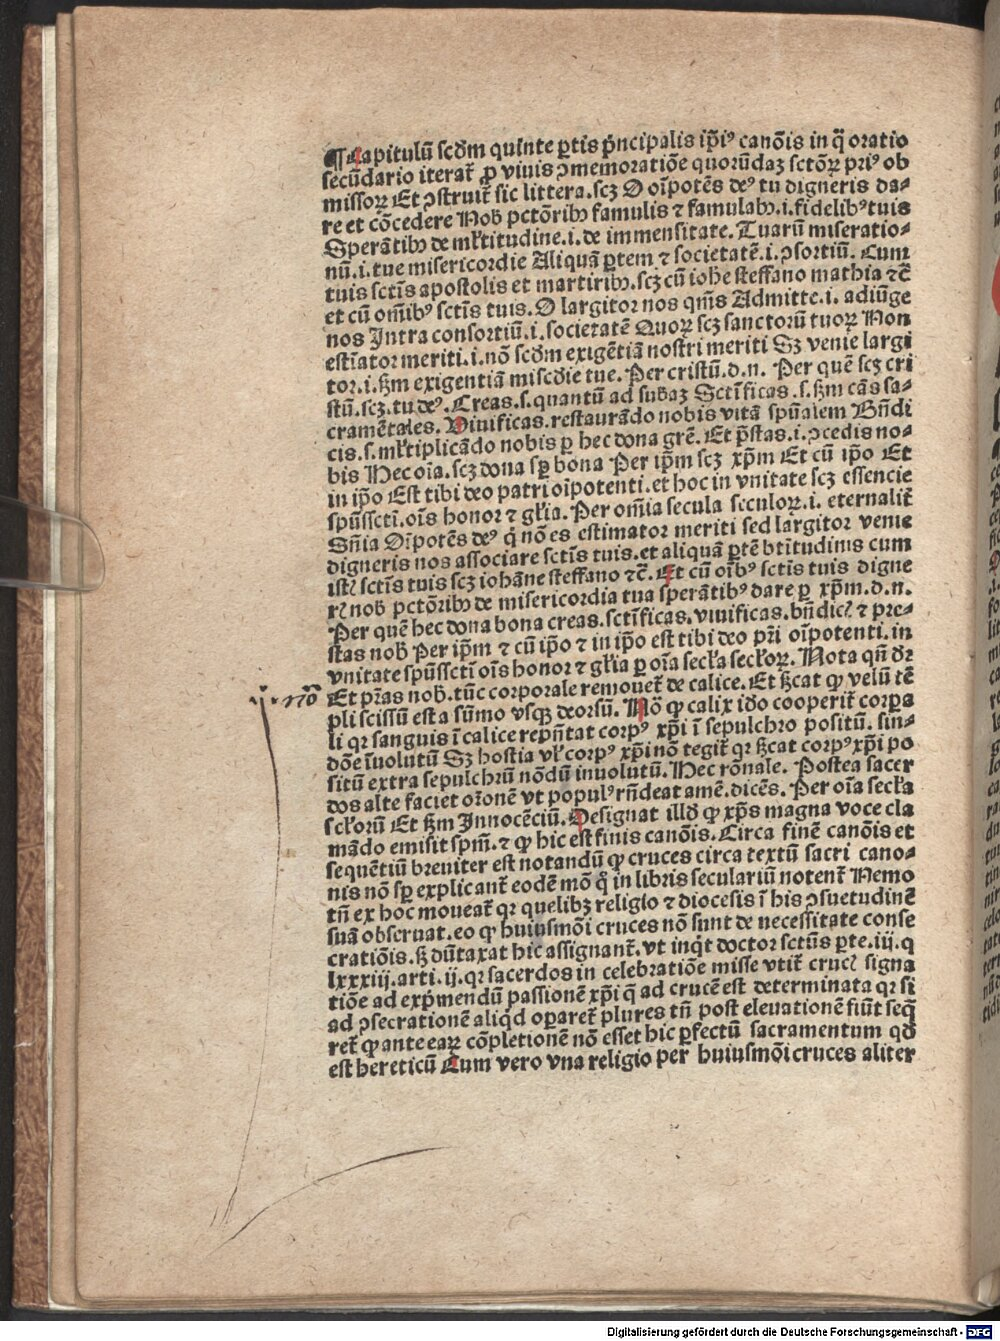 ¶Capitulū scd̄m quinte ꝑtis p̄ncipalis ip̄iꝰ canōis in q̄ oratio
secūdario iterat̄ ꝓ viuis ꝯmemoratiōe quorūdaz sctōꝝ priꝰ ob
missoꝝ Et ꝯstruit̄ sic littera.scz O oīpotēs deꝰ tu digneris da⸗
re et cōcedere Nob̄ pctōribꝫ famulis ⁊ famulabꝫ.i.fidelibꝰ tuis
Sperātibꝫ de ml̄titudine.i.de immensitate. Tuarū miseratio⸗
nū.i.tue misericordie Aliquā ꝑtem ⁊ societatē.i.ꝯsortiū. Cum
tuis sctīs apostolis et martiribꝫ.scz cū iohe steffano mathia ⁊c̄
et cū om̄ibꝰ sctīs tuis. O largitor nos qm̄s Admitte.i. adiūge
nos Intra consortiū.i.societatē Quoꝝ scz sanctorū tuoꝝ Non
estīator meriti.i.nō scd̄m exigētiā nostri meriti Sz venie largi
tor.i.ẜm exigentiā misc̄die tue. Per cristū.d.n. Per quē scz cri
stū.scz.tu deꝰ. Creas.s.quantū ad sub̄az Sctīficas.s.ẜm cās sa⸗
cramētales. Uiuificas.restaurādo nobis vitā spūalem Bn̄di
cis.s.ml̄tiplicādo nobis ꝑ hec dona grē. Et p̄stas.i.ꝯcedis no⸗
bis Hec oīa.scz dona sꝑ bona Per ip̄m scz xp̄m Et cū ip̄o Et
in ip̄o Est tibi deo patri oīpotenti.et hoc in vnitate scz essencie
spūssctī.oīs honor ⁊ gl̄ia. Per om̄ia secula seculoꝝ.i. eternalit̄
Sn̄ia Oīpotēs deꝰ q̄ nō es estimator meriti sed largitor venie
digneris nos associare sctīs tuis.et aliquā ꝑtē btītudinis cum
istꝭ sctīs tuis scz iohāne steffano ⁊c̄. Et cū oībꝰ sctīs tuis digne
rꝭ nob̄ pctōribꝫ de misericordia tua sperātibꝰ dare ꝑ xp̄m.d.n.
Per quē hec dona bona creas.sctīficas.viuificas.bn̄dicꝭ ⁊ pre⸗
stas nob̄ Per ip̄m ⁊ cū ip̄o ⁊ in ip̄o est tibi deo pr̄i oīpotenti.in
vnitate spūssctī oīs honor ⁊ gl̄ia ꝑ oīa secl̄a secl̄oꝝ. Nota qn̄ dꝛ
.ij. nō Et pr̄as nob̄.tūc corporale remouet̄ de calice. Et ẜcat ꝙ velū tē
pli scissū est a sūmo vsqꝫ deorsū. Nō ꝙ calix iđo cooperit̄ corpa
li qꝛ sanguis ī calice rep̄n̄tat corpꝰ xp̄i ī sepulchro positū. sin⸗
dōe īuolutū Sz hostia vl̄ corpꝰ xp̄i nō tegit̄ qꝛ ẜcat corpꝰ xp̄i po
sitū extra sepulchrū nōdū inuolutū. Hec rōnale. Postea sacer
dos alte faciet or̄onē vt populꝰ rn̄deat amē.dicēs. Per oīa secl̄a
scl̄orū Et ẜm Innocēciū. Designat illđ ꝙ xp̄s magna voce cla
mādo emisit spm̄.⁊ ꝙ hic est finis canōis. Circa finē canōis et
sequētiū breuiter est notandū ꝙ cruces circa textū sacri cano⸗
nis nō sꝑ explicant̄ eodē mō q̄ in libris seculariū notent̄ Nemo
tn̄ ex hoc moueat̄ qꝛ quelibꝫ religio ⁊ diocesis ī his ꝯsuetudinē
suā obseruat.eo ꝙ huiusmōi cruces nō sunt de necessitate conse
cratiōis.ẜ dūtaxat hic assignant̄. vt inq̄t doctor sctūs ꝑte.iij.q
lxxxiij.arti.ij.qꝛ sacerdos in celebratiōe misse vtit̄ crucꝭ signa
tiōe ad exp̄mendū passionē xp̄i q̄ ad crucē est determinata qꝛ si
ad ꝯsecrationē aliq̄d oꝑaret̄ plures tn̄ post eleuationē fiūt seq̄
ret̄ ꝙ ante eaꝝ cōpletionē nō esset hic ꝑfectū sacramentum qđ
est hereticū Cum vero vna religio per huiusmōi cruces aliter
Digitalisierung gefördert durch die Deutsche Forschungsgemeinschaft - DFG